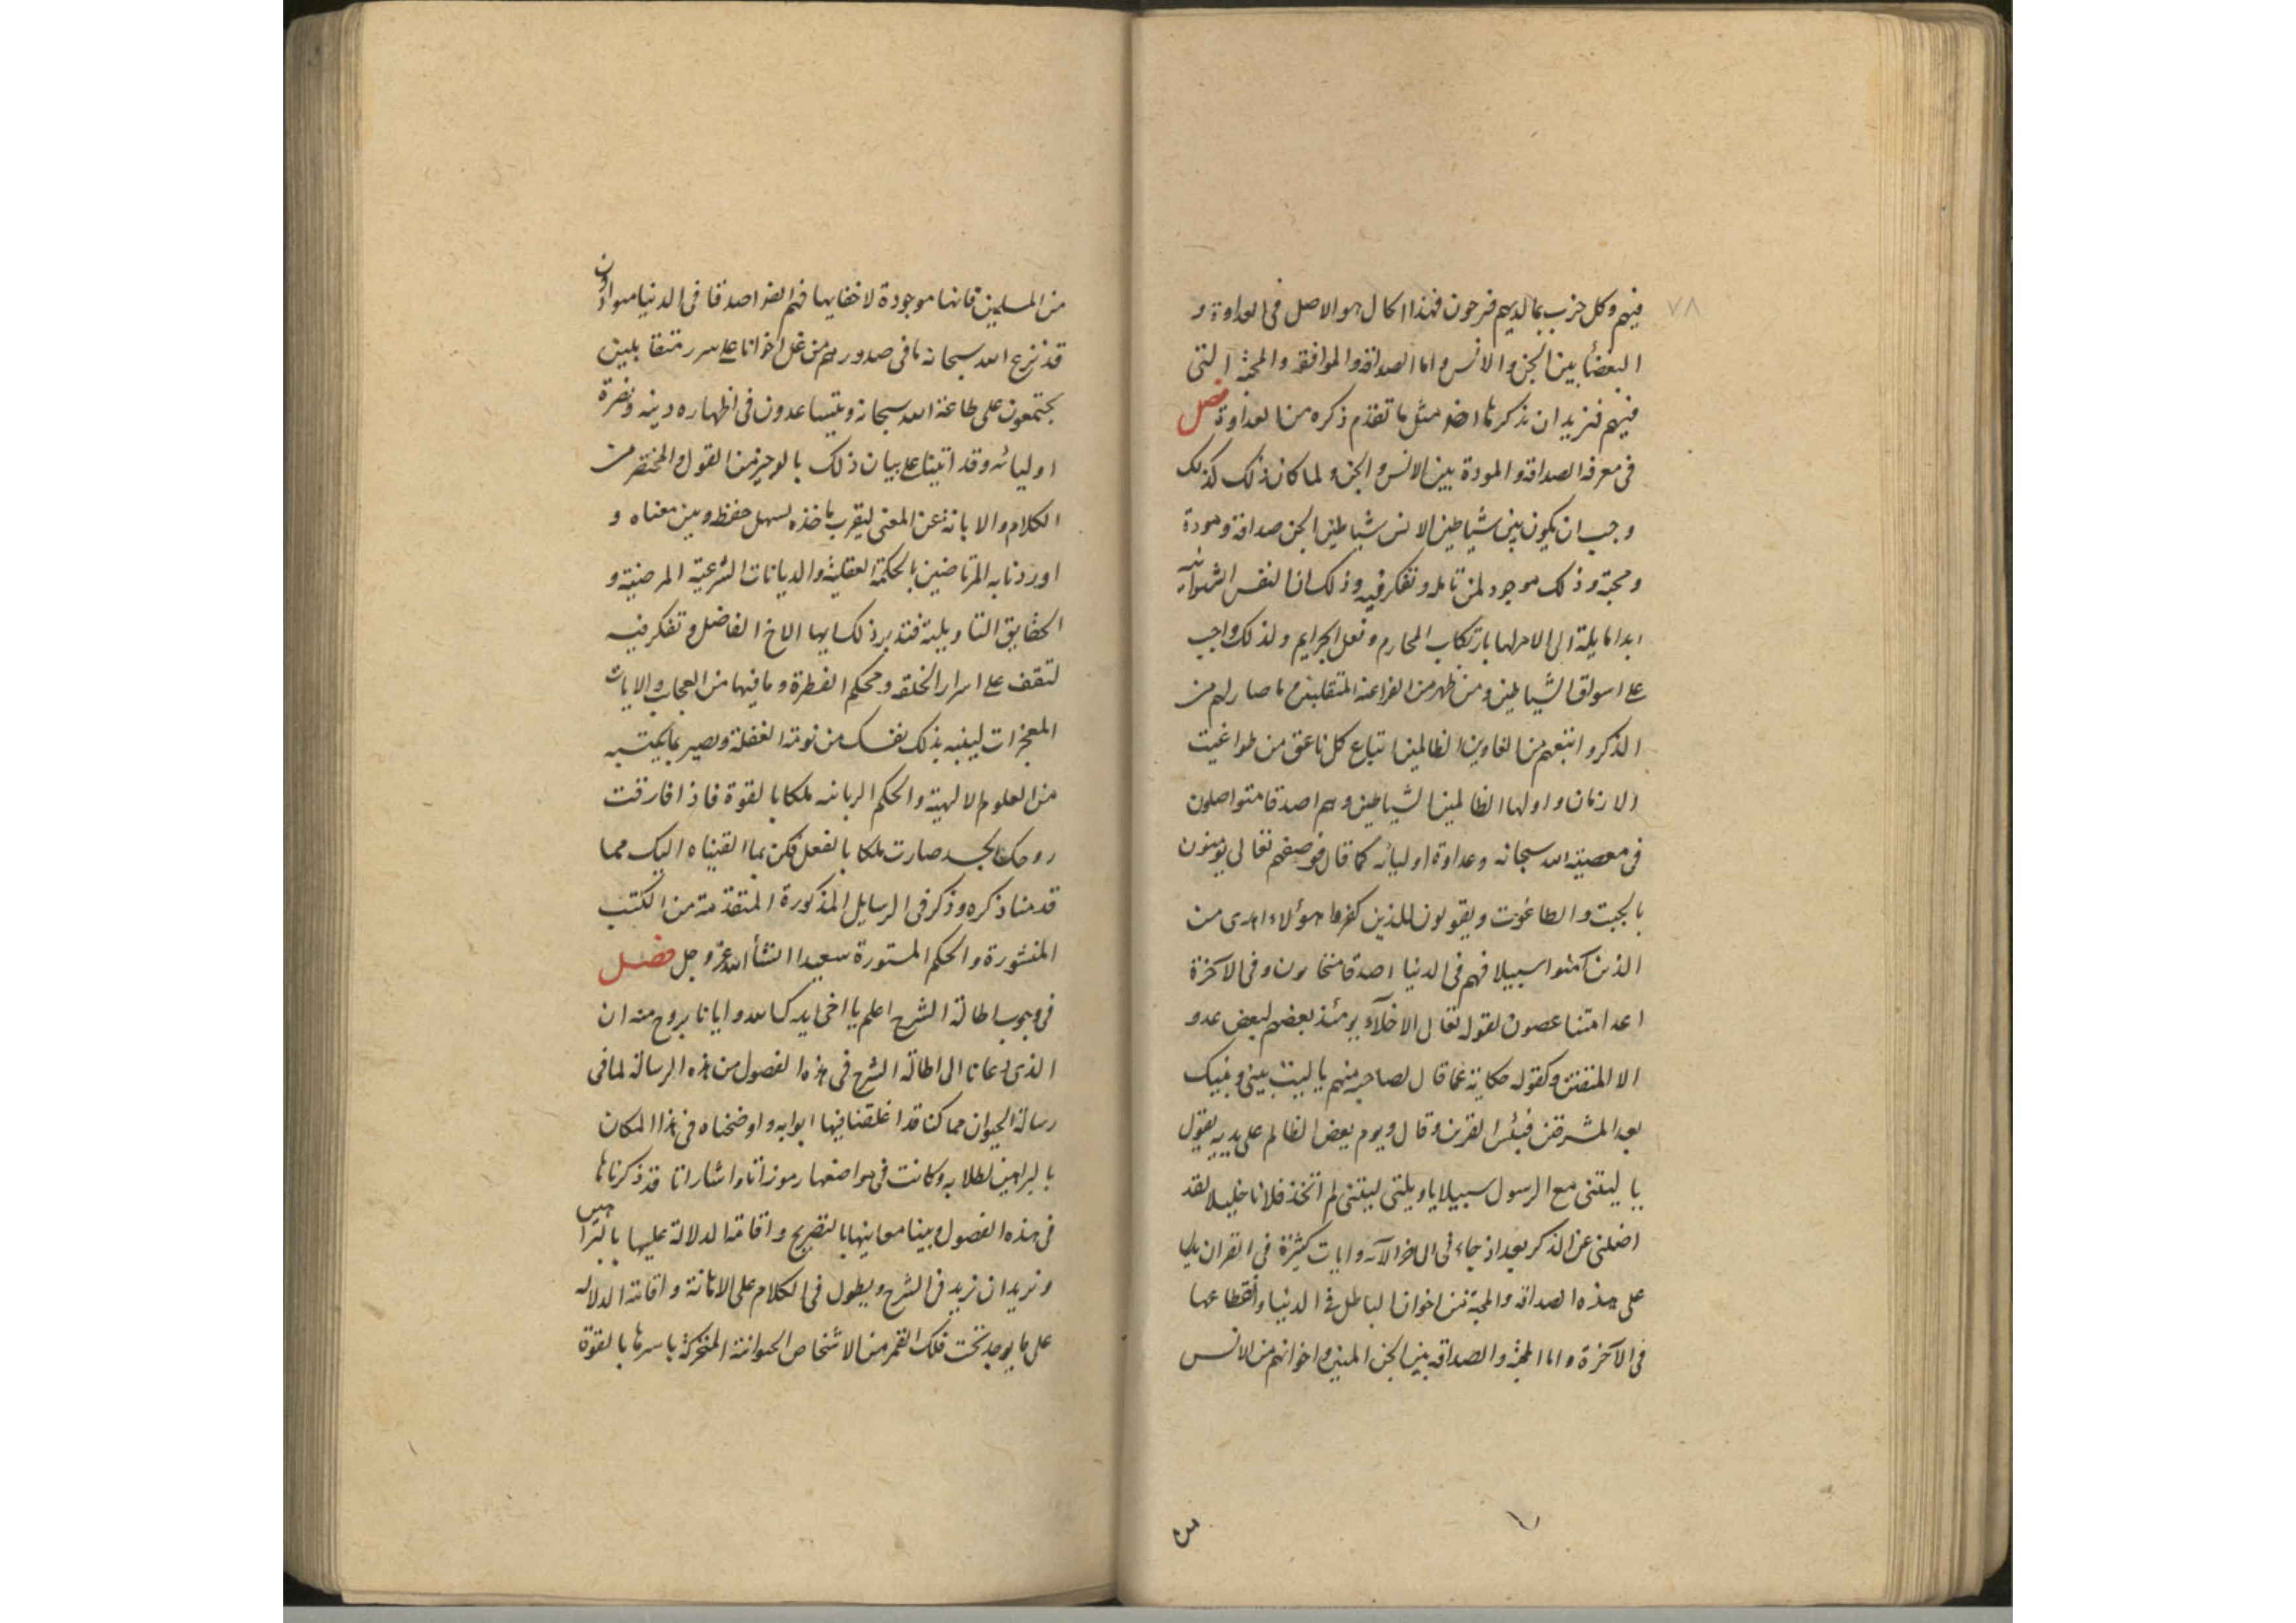 ٧٨
فيهم وكل حزب بما لديهم فرحون فهذا الحال هو الاصل فى العداوة و
البغضأ بين الجن والانس واما الصداقه والموافقه والمحبة التى
فيهم فنريد ان نذكرها ايضا مثل ما تقدم ذكره من العداوة فصل
فى معرفه الصداقه والمودة بين الانس والجن ولما كان ذلك كذلك
وجب ان يكون بين شياطين الانس شياطين الجن صداقة ومودة
ومحبة وذلك موجود لمن تامله وتفكر فيه وذلك ان النفس الشهوانيه
ابدا مايلة الى الامر لها بارتكاب المحارم وفعل الجرايم ولذلك واجب
على الشياطين ومن ظهر من الفراعنه المتقلبين ما صار لهم من
الذكر واتبعهم من الغاوين الظالمين اتباع كل ناعق من طواغيت
الازمان واولها الظالمين الشياطين وهم اصدقا متواصلون
فى معصية الله سبحانه وعداوة اوليائه كما قال فوصفهم تعالى يومنون
بالجبت والطاغوت ويقولون للذين كفروا هؤلاء اهدى من
الذين آمنوا سبيلا فهم فى الدنيا اصدقا متحابون وفى الآخرة
اعدا متناعصون لقوله تعالى الاخلآء يومئذ بعضهم لبعض عدو
الا المتقين وكقوله حكاية عما قال لصاحبه منهم يا ليت بينى وبينك
بعد المشرقين فبئس القرين وقال ويوم يعض الظالم على يديه يقول
يا ليتنى مع الرسول سبيلا ياويلتى ليتنى لم اتخذ فلانا خليلا لقد
اضلنى عن الذكر بعد اذ جاءنى الى اخر الآيه وايات كثيرة فى القران يدل
على هذه الصداقه والمحبة بين اخوان الباطل فى الدنيا وانقطاعها
فى الآخرة واما المحبة والصداقه بين الجن المومنين واخوانهم من الانس
من المسلمين فانها موجودة لا خفا بها فهم ايضا اصدقا فى الدنيا متوادون
قد نزع الله سبحانه ما فى صدورهم من غل اخوانا على سرر متقابلين
يجتمعون على طاعة الله سبحانه ويتساعدون فى اظهاره دينه ونصرة
اوليائه وقد اتينا على بيان ذلك بالوجيز من القول والمختصر من
الكلام والابانة عن المعنى ليقرب ماخذه يسهل حفظه ويبن معناه و
اوردنا به المرتاضين بالحكمة العقلية والديانات الشرعية المرضية و
الحقايق التاويلية فتدبر ذلك ايها الاخ الفاضل وتفكر فيه
لتقف على اسرار الخلقه ومحكم الفطرة وما فيها من العجايب والايات
المعجزات لينبه بذلك نفسك من نومة الغفلة وتصير بما يكتسبه
من العلوم الالهية والحكم الربانيه ملكا بالقوة فاذا فارقت
روحك الجسد صارت ملكا بالفعل فكن بما القيناه اليك مما
قدمنا ذكره وذكر فى الرسايل المذكورة المتقدمة من الكتب
المنشورة والحكم المستورة سعيدا انشأ الله عز وجل فصل
فى وجوب اطالة الشرح اعلم يا اخى ايدك الله وايانا بروح منه ان
الذى دعانا الى اطالة الشرح فى هذه الفصول من هذه الرسالة لما فى
رسالة الحيوان مما كنا قد اغلقنا فيها ابوابه واوضحناه فى هذا المكان
بالبراهين لطلابه وكانت فى مواضعها رموزاتا واشاراتا قد ذكرناها
فى هذه الفصول وبينا معاينها بالتصريح واقامة الدلالة عليها بالبراهين
ونريد ان نزيد فى الشرح ويطول فى الكلام على الابانة واقامة الدلاله
على ما يوجد تحت فلك القمر من الاشخاص الحيوانية المتحركة باسرها بالقوة